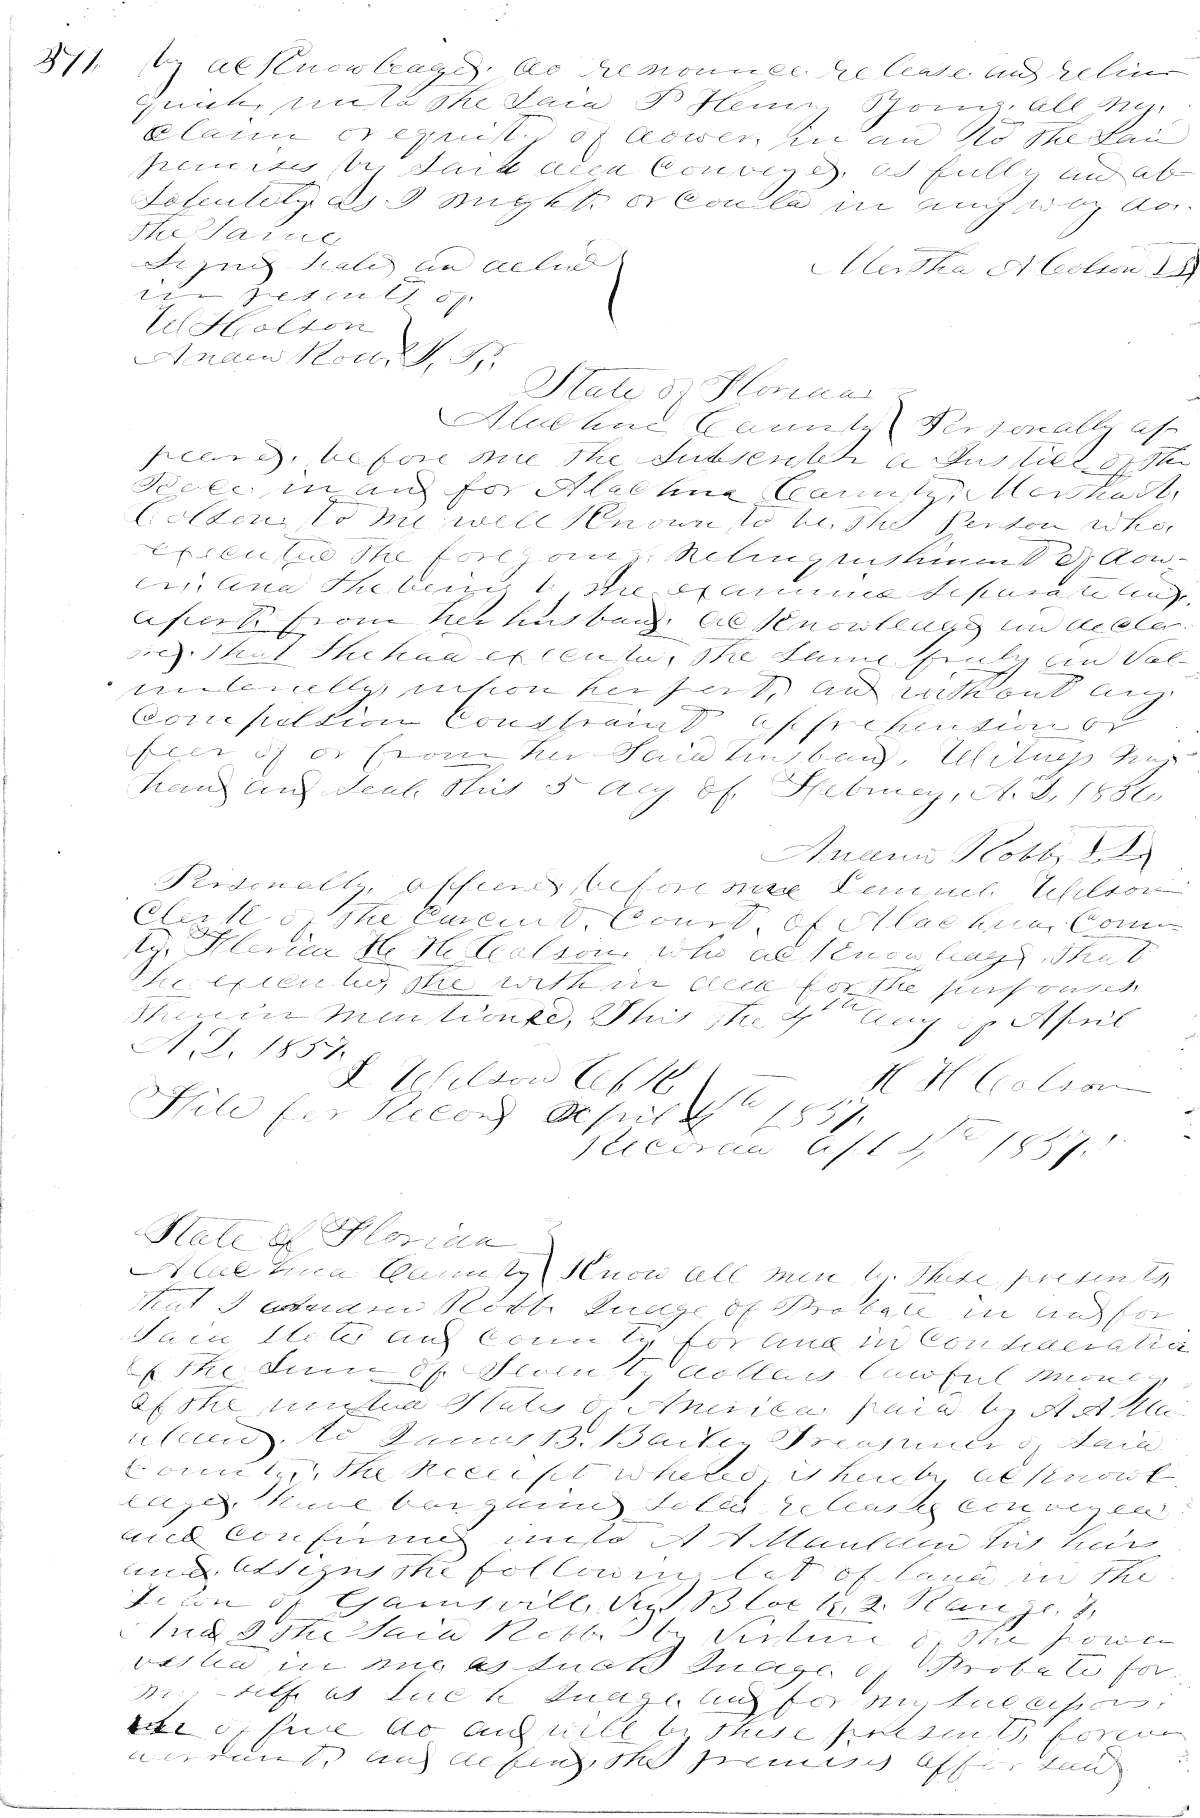 371. by acKnowleaged. do renounce release and relin
quich, unto the Said P Henry Young. all my,
claim or equity of dower, in an to the Said
premises by Said deed Conveyed, as fully and ab-
Solutely as I might or Could in any way do.
the Same
Signed Sealed an deliv
in presents of
Mertha A Colson LS
W Holson
Andrew Robb, J, P,
State of Florida
Alachua County Personally ap
peared, before me the Subscriber a Justice of the
Peace in and for Alachua County, Mershal,
Colson, to me well Known to be the Person who,
executed the foregoing Relinquishment of dow-
er. and She being by me examined Separate and,
apart from her husband. acKnowleaged an declar
red. that She had executed, the Same freely an Vol-
untarially, upon her part, and without any.
Compulsion Constraint apprehension or
feer of or from her Said husband. Witness my
hand and Seal this 5 day of Februay, A. D, 1856
Andrew Robb, L.S.
Personally, appeared before me Lemuel Wilson
Clerk of the Curcuit, Court, of Alachua Coun
ty, Florida H. H. Colson, who acKnowleaged, that
he executed, the with in deed for the purposes,
therein mentioned, This the 4th day of April
A. D. 1857.
L Wilson ClK H H Colson
File for Record April 4th 1857.
Recorded Apl 4th 1857.
State of Florida
Alachua County Know all men by these presents,
that I Andrew Robb Judge of Probate in and for
Said State and County for and in Consideration
of the Sum of Seventy dollars lawful money
of the united States of America paid by A A Ma
ulden. to James B. Bailey Treasurer of Said
County, the Receipt whereof is hereby acKnowl
eaged. have bargained Soled released conveyed
and Confirmed unto A A Maulden his heirs
and assigns the following lot of land in the
Town of Gainsvill, Viz Block, 2. Range. 1,
And I the Said Robb by Virture of the power
vested in me as Such Judge of Probate for
my-self as Such Judge. and for my Successors
office do and will by these presents, forever
warrant, and defend, the premises afforsaid